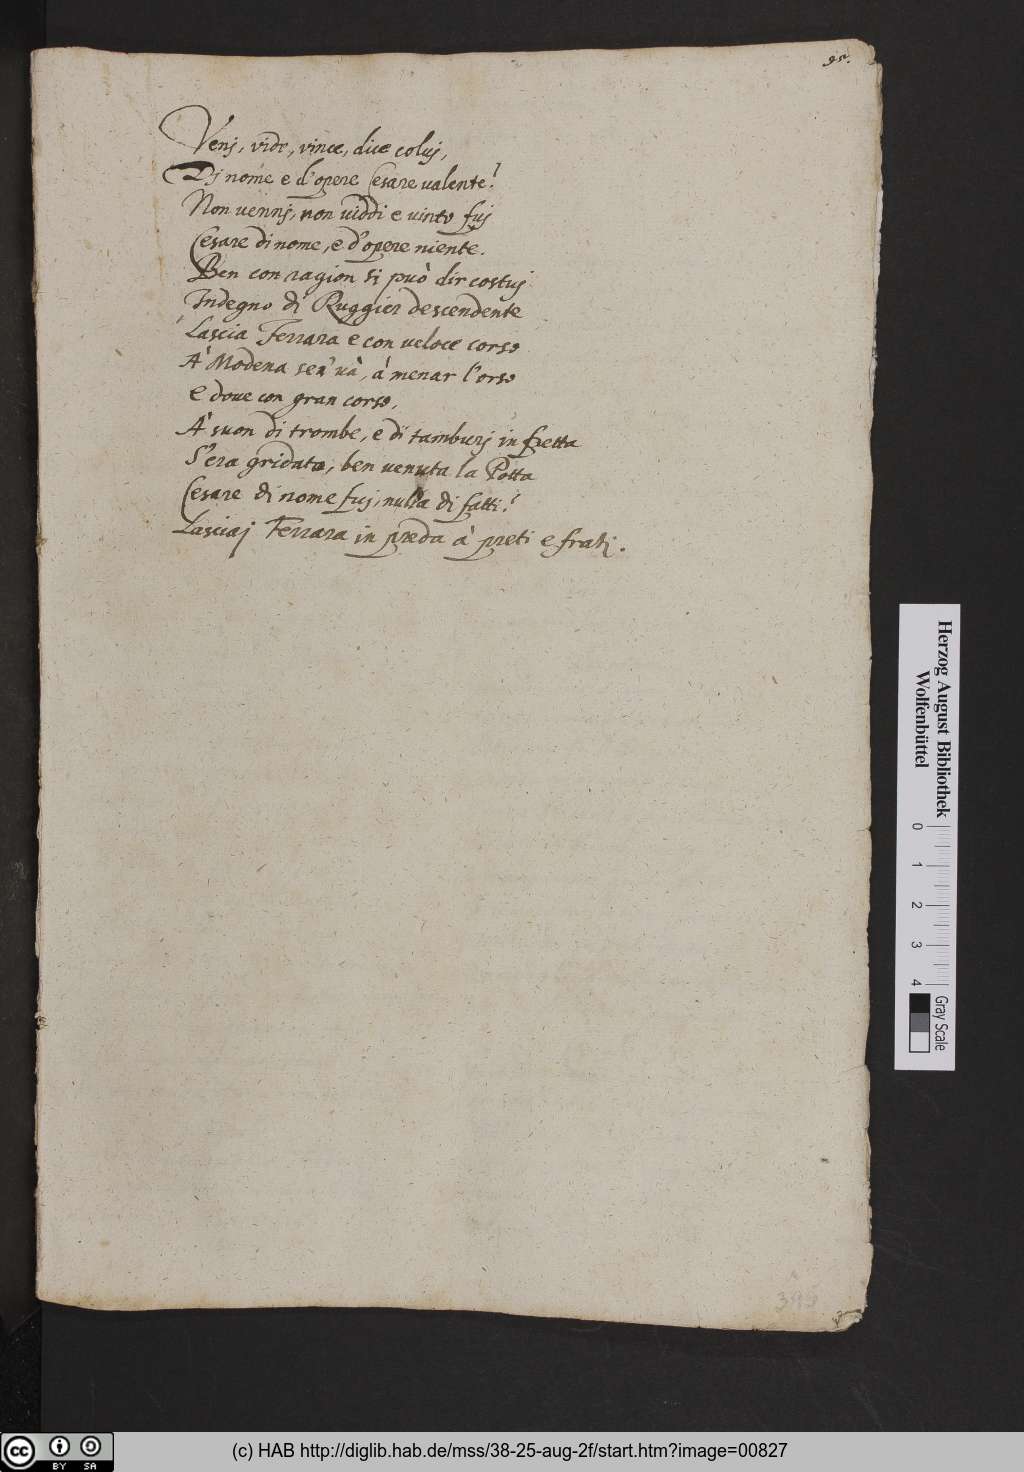 95.
Venj, vide, vince, dice coluj,
Dj nome e d'opere Cesare ualente!
Non uennj, non uiddi e uinto fuj
Cesare di nome, e d'opere niente.
Ben con ragion si può dir costuj
Indegno di Ruggier descendente
Lascia Ferrara e con ueloce corso
A' Modena sen' uà, à menar l'orso
e doue con gran corso,
A' suon di trombe, e di tamburj in fretta
S'era gridato, ben uenuta la Potta
Cesare di nome fuj, nulla di fatti!
Lasciaj Ferrara in preda à preti e fratj.
Herzog August Bibliothek
Wolfenbüttel
0 1 2 3 4
Gray Scale
cc BY SA
(c) HAB http://diglib.hab.de/mss/38-25-aug-2f/start.htm?image=00827